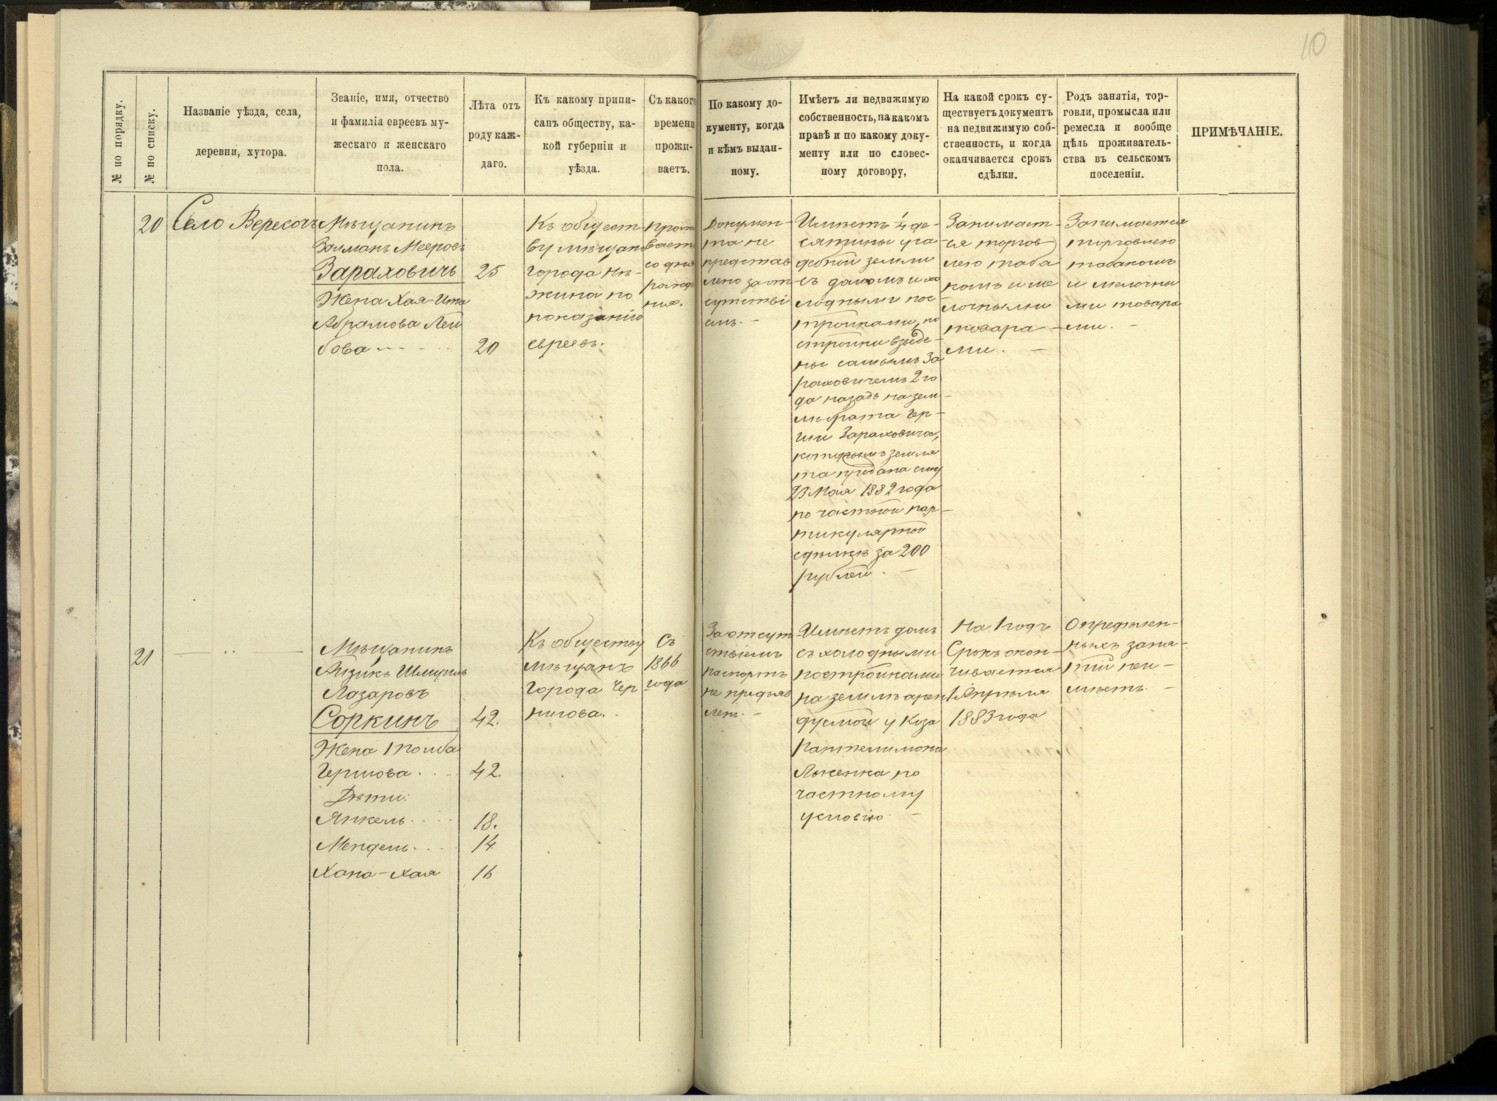 10
№ по порядку.
№ по списку.
Названіе уѣзда, села,
деревни, хутора.
Званіе, имя, отчество
и фамилія евреевъ му-
жескаго и женскаго
пола.
Лѣта отъ
роду каж-
даго.
Къ какому припи-
санъ обществу, ка-
кой губерніи и
уѣзда.
Съ какого
времени
прожи-
ваетъ.
По какому до-
кументу, когда
и кѣмъ выдан-
ному.
Имѣетъ ли недвижимую
собственность, на какомъ
правѣ и по какому доку-
менту или по словес-
ному договору,
На какой срокъ су-
ществуетъ документъ
на недвижимую соб-
ственность, и когда
оканчивается срокъ
сдѣлки.
Родъ занятія, тор-
говли, промысла или
ремесла и вообще
цѣль проживатель-
ства въ сельскомъ
поселеніи.
ПРИМѢЧАНІЕ.
20
Село Вересочь
Мѣщанинъ
Залманъ Мееровъ
Зараховичъ
Жена Хая-Ита
Абрамова Лей
бова
25
20
Къ общест-
ву мѣщан
города Нѣ-
жина по
показанію
евреевъ.
прожи
ваетъ
со дня
рожде
нія.
Докумен-
та не
представ
лено за от
сутстві
емъ. -
Имѣетъ 1/4 де-
сятины уса-
дебной земли
съ домомъ и хо
лодными пос
тройками, по
стройки взведе-
ны самымъ За
раховичемъ 2 го
да назадъ на зем-
лѣ брата Гер-
ши Зараховича,
которымъ земля
та продана ему
23 Мая 1882 года
по частной пар-
тикулярной
сдѣлкѣ за 200
рублей. -
Занимает-
ся торгов-
лею таба
комъ и ме
лочными
товара-
ми. -
Занимается
торговлею
табакомъ
и мелочны
ми товара
ми. -
21
- " -
Мѣщанинъ
Айзикъ Шмуиль
Лазаровъ
Соркинъ
Жена Толба
Гершова
Дѣти:
Янкель
Мендель
Хана-Хая
42.
42.
18.
14
16
Къ обществу
мѣщанъ
города Чер
нигова.
Съ
1866
года
За отсут
ствіемъ
паспортъ
не предъяв
ленъ. -
Имѣетъ домъ
съ холодными
постройками
на землѣ арен
дуемой у Коза
Пантелимона
по
частному
условію -
На 1 годъ
Срокъ окон-
чивается
1 Апрѣля
1883 года
Опредѣлен-
ныхъ заня-
тій неи-
мѣетъ. -